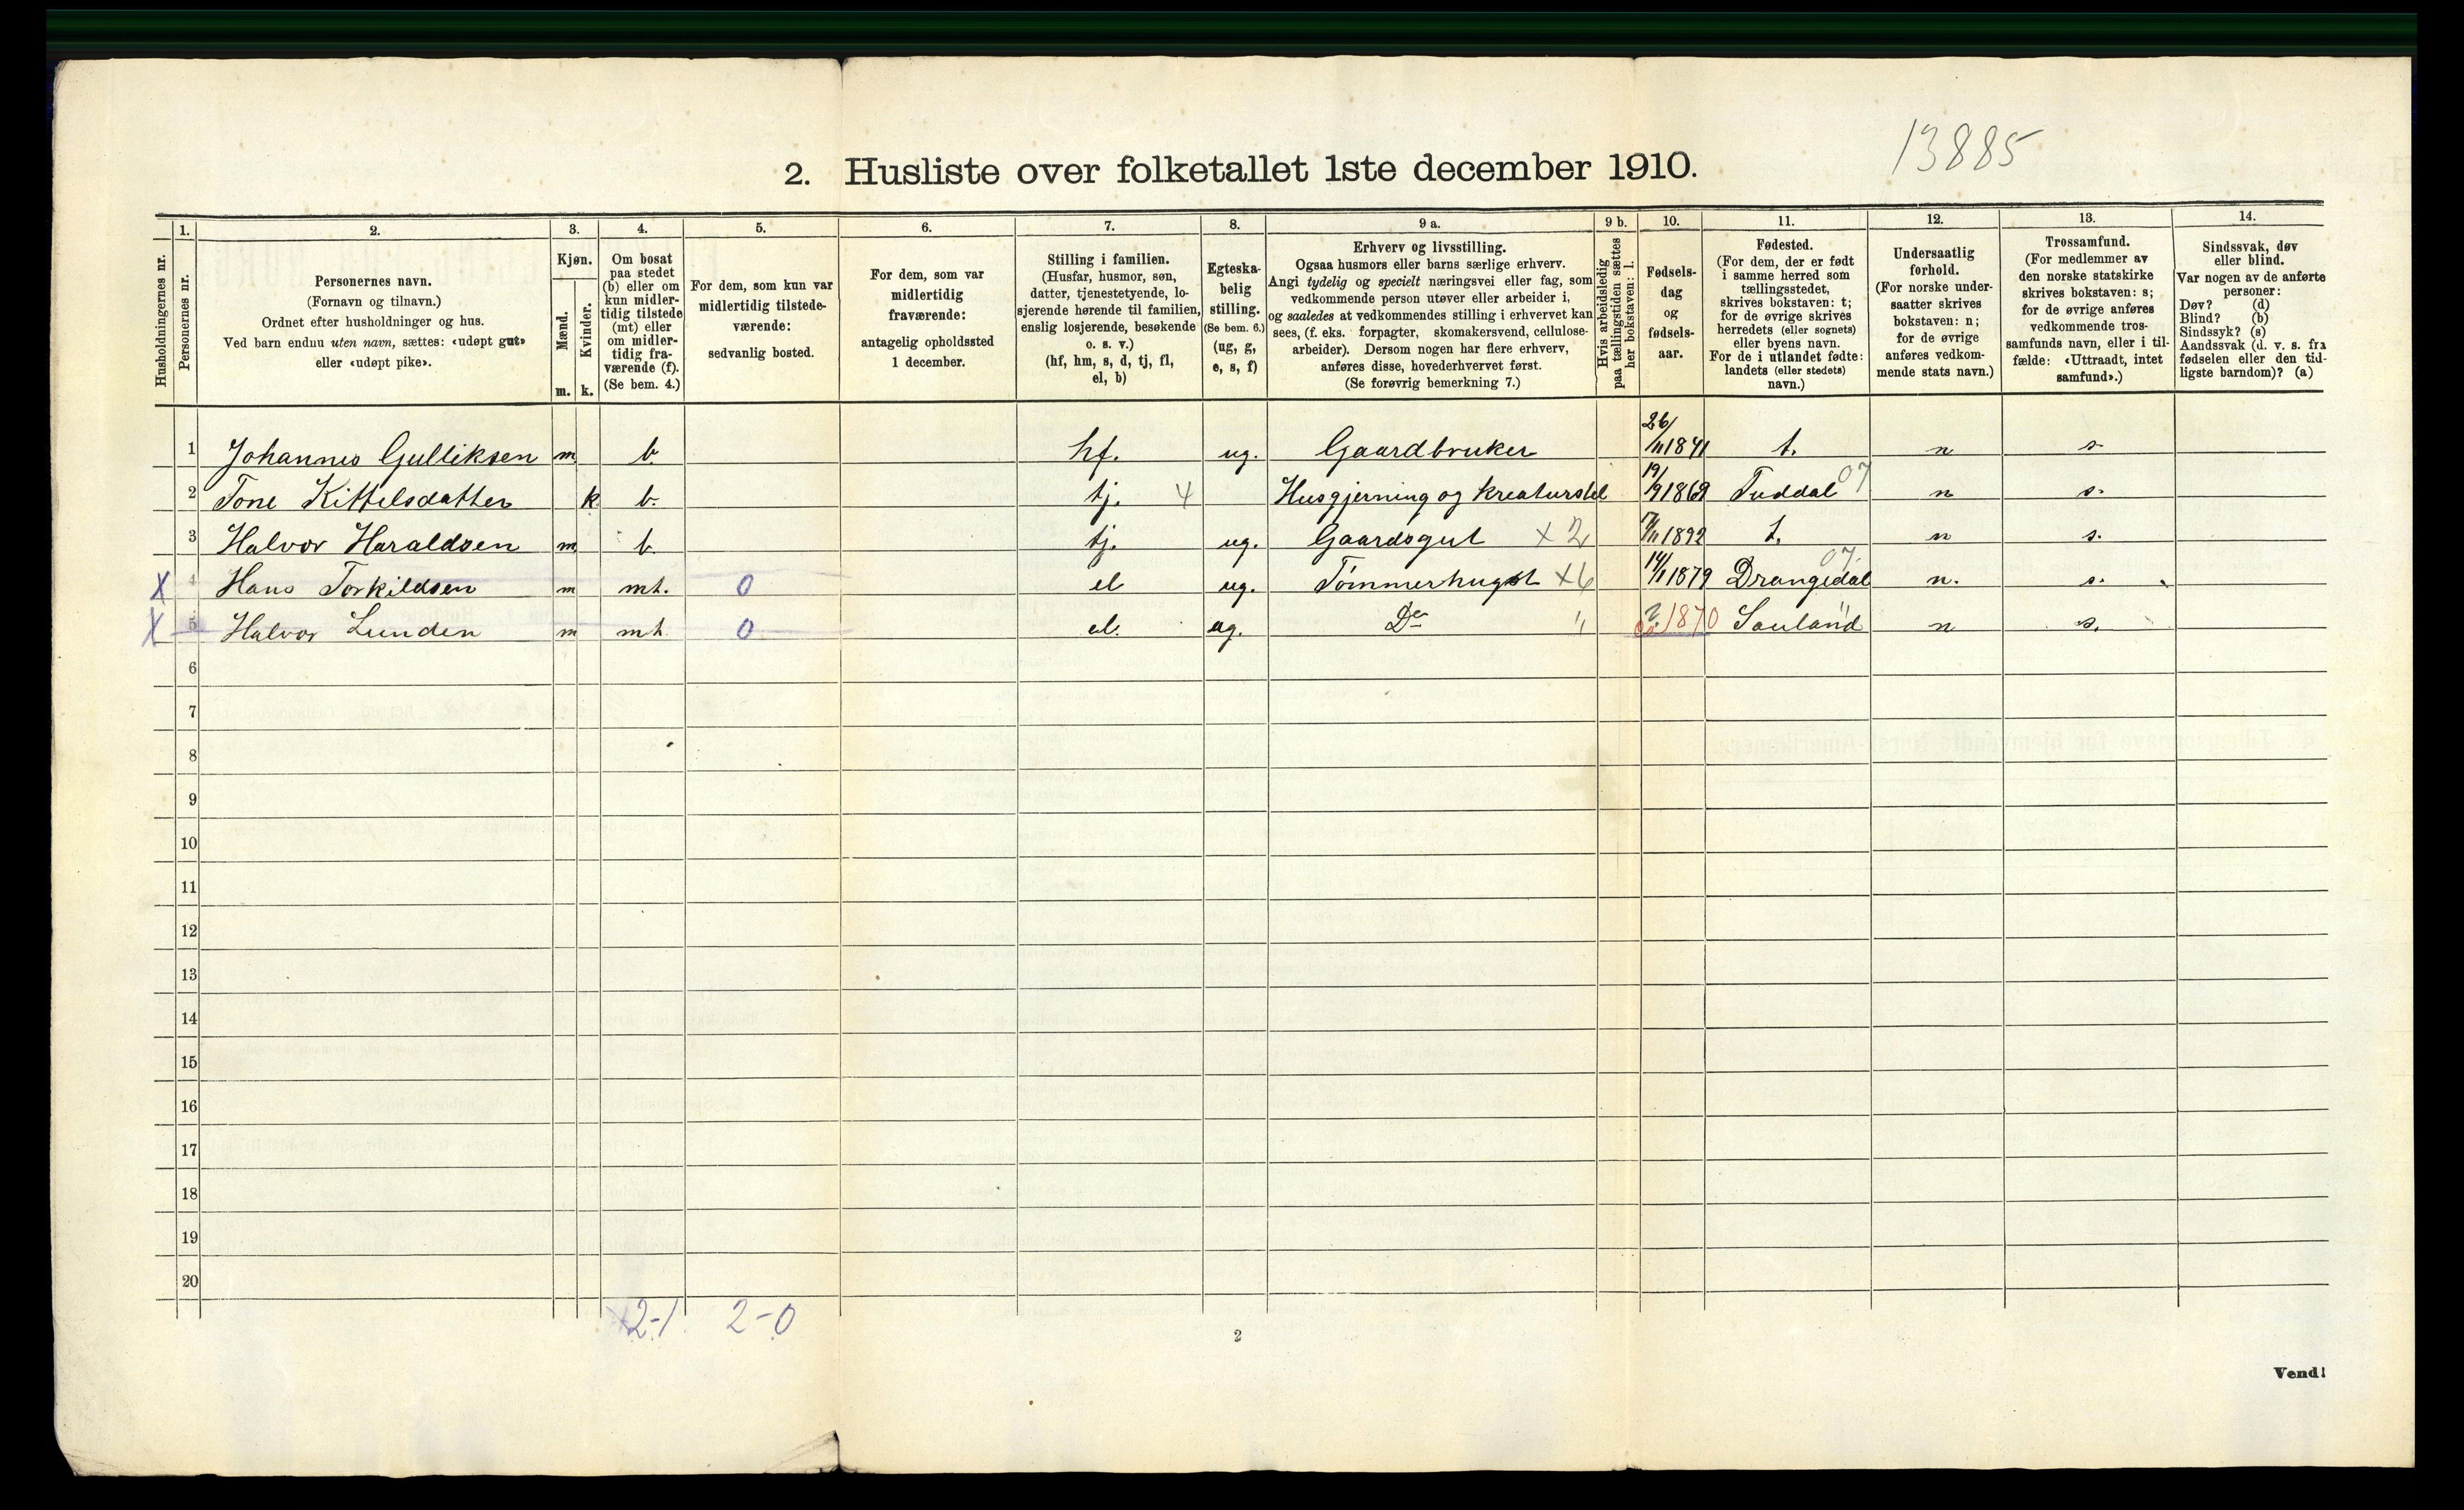 13885
2. Husliste over folketallet 1ste december 1910.
Husholdningernes nr.
1.
Personernes nr.
2.
Personernes navn.
(Fornavn og tilnavn.)
Ordnet efter husholdninger og hus.
Ved barn endnu uten navn, sættes: «udøpt gut»
eller «udøpt pike».
3.
Kjøn.
Mænd.
Kvinder.
m. k.
4.
Om bosat
paa stedet
(b) eller om
kun midler-
tidig tilstede
(mt) eller
om midler-
tidig fra-
værende (f).
(Se bem. 4.)
5.
For dem, som kun var
midlertidig tilstede-
værende:
sedvanlig bosted.
6.
For dem, som var
midlertidig
fraværende:
antagelig opholdssted
1 december.
7.
Stilling i familien.
(Husfar, husmor, søn,
datter, tjenestetyende, lo-
sjerende hørende til familien,
enslig losjerende, besøkende
o. s. v.)
(hf, hm, s, d, tj, fl,
el, b)
8.
Egteska-
belig
stilling.
(Se bem. 6.)
(ug, g,
e, s, f)
9 a.
Erhverv og livsstilling.
Ogsaa husmors eller barns særlige erhverv.
Angi tydelig og specielt næringsvei eller fag, som
vedkommende person utøver eller arbeider i,
og saaledes at vedkommendes stilling i erhvervet kan
sees, (f. eks. forpagter, skomakersvend, cellulose-
arbeider). Dersom nogen har flere erhverv,
anføres disse, hovederhvervet først.
(Se forøvrig bemerkning 7.)
9 b.
Hvis arbeidsledig
paa tællingstiden sættes
her bokstaven: l.
10.
Fødsels-
dag
og
fødsels-
aar.
11.
Fødested.
(For dem, der er født
i samme herred som
tællingsstedet,
skrives bokstaven: t;
for de øvrige skrives
herredets (eller sognets)
eller byens navn.
For de i utlandet fødte:
landets (eller stedets)
navn.)
12.
Undersaatlig
forhold.
(For norske under-
saatter skrives
bokstaven: n;
for de øvrige
anføres vedkom-
mende stats navn.)
13.
Trossamfund.
(For medlemmer av
den norske statskirke
skrives bokstaven: s;
for de øvrige anføres
vedkommende tros-
samfunds navn, eller i til-
fælde: «Uttraadt, intet
samfund».)
14.
Sindssvak, døv
eller blind.
Var nogen av de anførte
personer:
Døv? (d)
Blind? (b)
Sindssyk? (s)
Aandssvak (d. v. s. fra
fødselen eller den tid-
ligste barndom)? (a)
1 Johannes Gulliksen m b. hf. ug. Gaardbruker 26/11 1841 t. n s
2 Tone Kittelsdatter k b. tj. 4 Husgjerning og kreaturstel 19/9 1869 Tuddal 07 n s.
3 Halvor Haraldsen m b tj. ug. Gaardsgut x 2 7/11 1892 t. n s.
X 4 Hans Torkildsen m mt. 0 el ug. Tømmerhugst x 6 14/1 1879 Drangedal 07. n. s.
X 5 Halvor Lunden m mt 0 el. ug. Do " 1870 Sauland " n s.
6
7
8
9
10
11
12
13
14
15
16
17
18
19
20
x2-1 2-0
2
Vend!